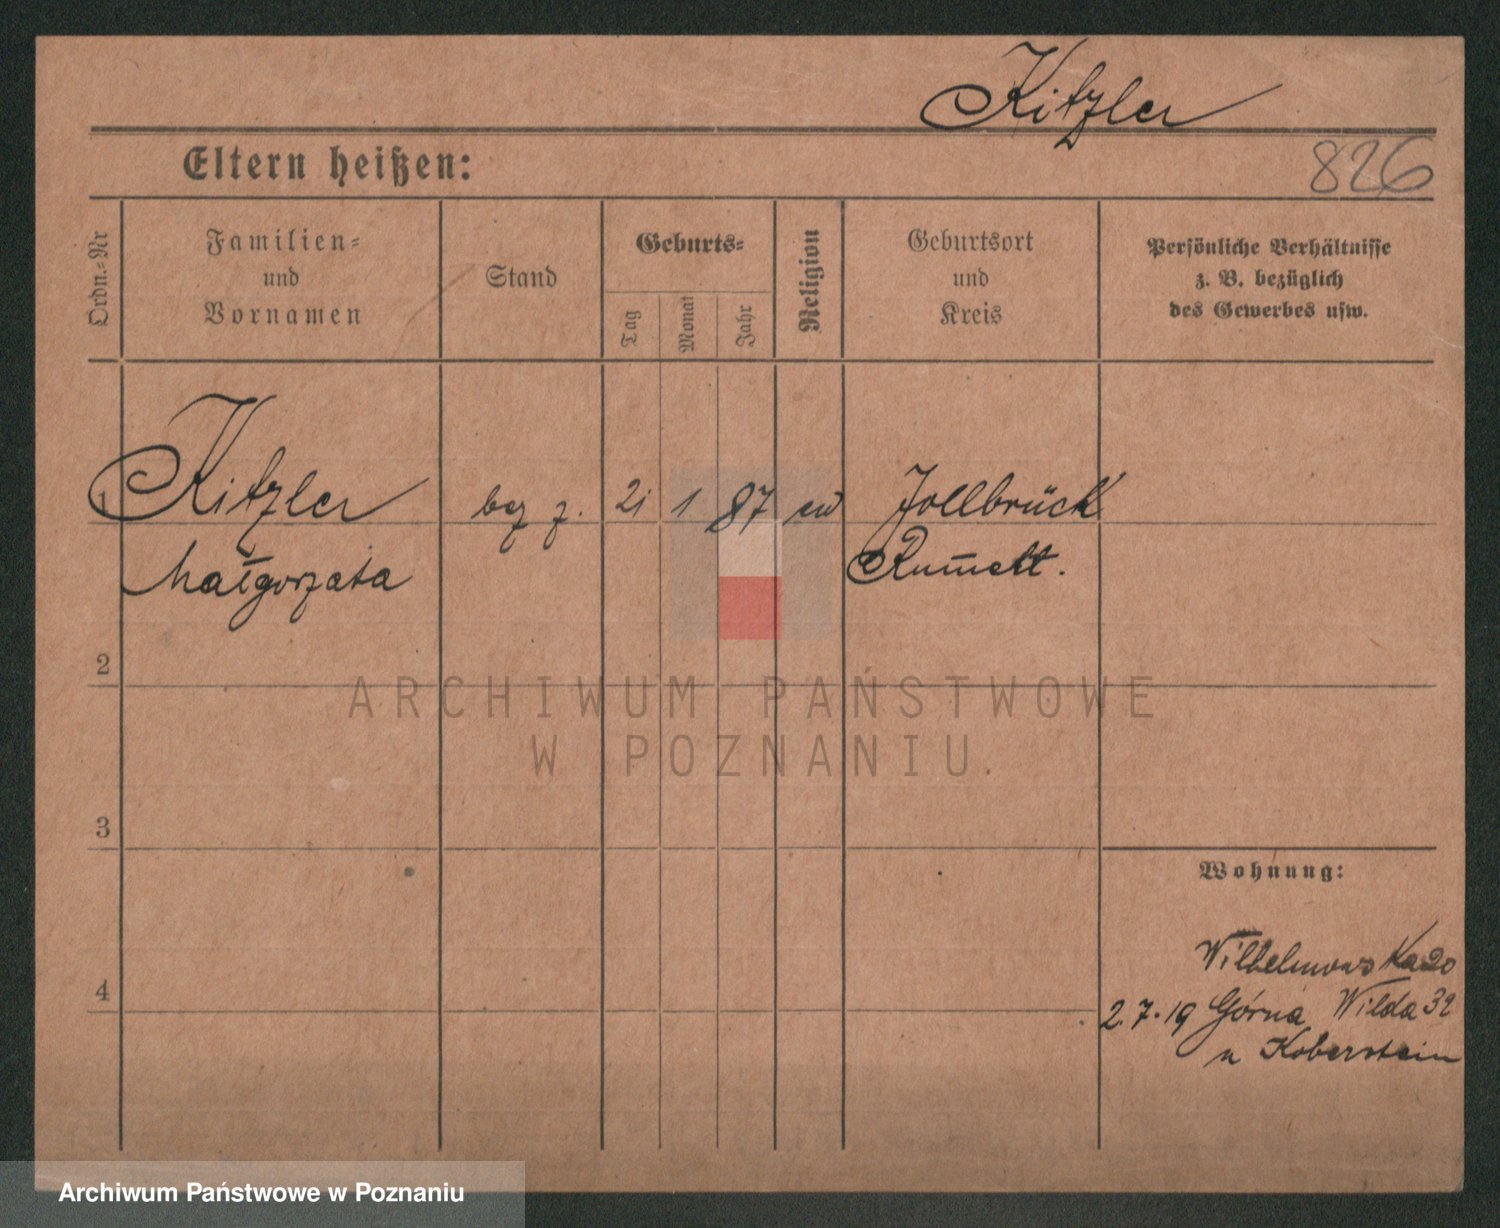 Kitzler
Eltern heißen:
826
Ordn.-Nr
Familien-
und
Vornamen
Stand
Geburts-
Tag
Monat
Jahr
Religion
Geburtsort
und
Kreis
Persönliche Verhältnisse
z. B. bezüglich
des Gewerbes usw.
1 Kitzler bez z. 21 1 87 ew Zollbrück
Małgorzata Rum̅elt.
2
ARCHIWUM PAŃSTWOWE
W POZNANIU.
3
Wohnung:
4
20
2.7.19 Górna Wilda 32
u Koberstein
Archiwum Państwowe w Poznaniu